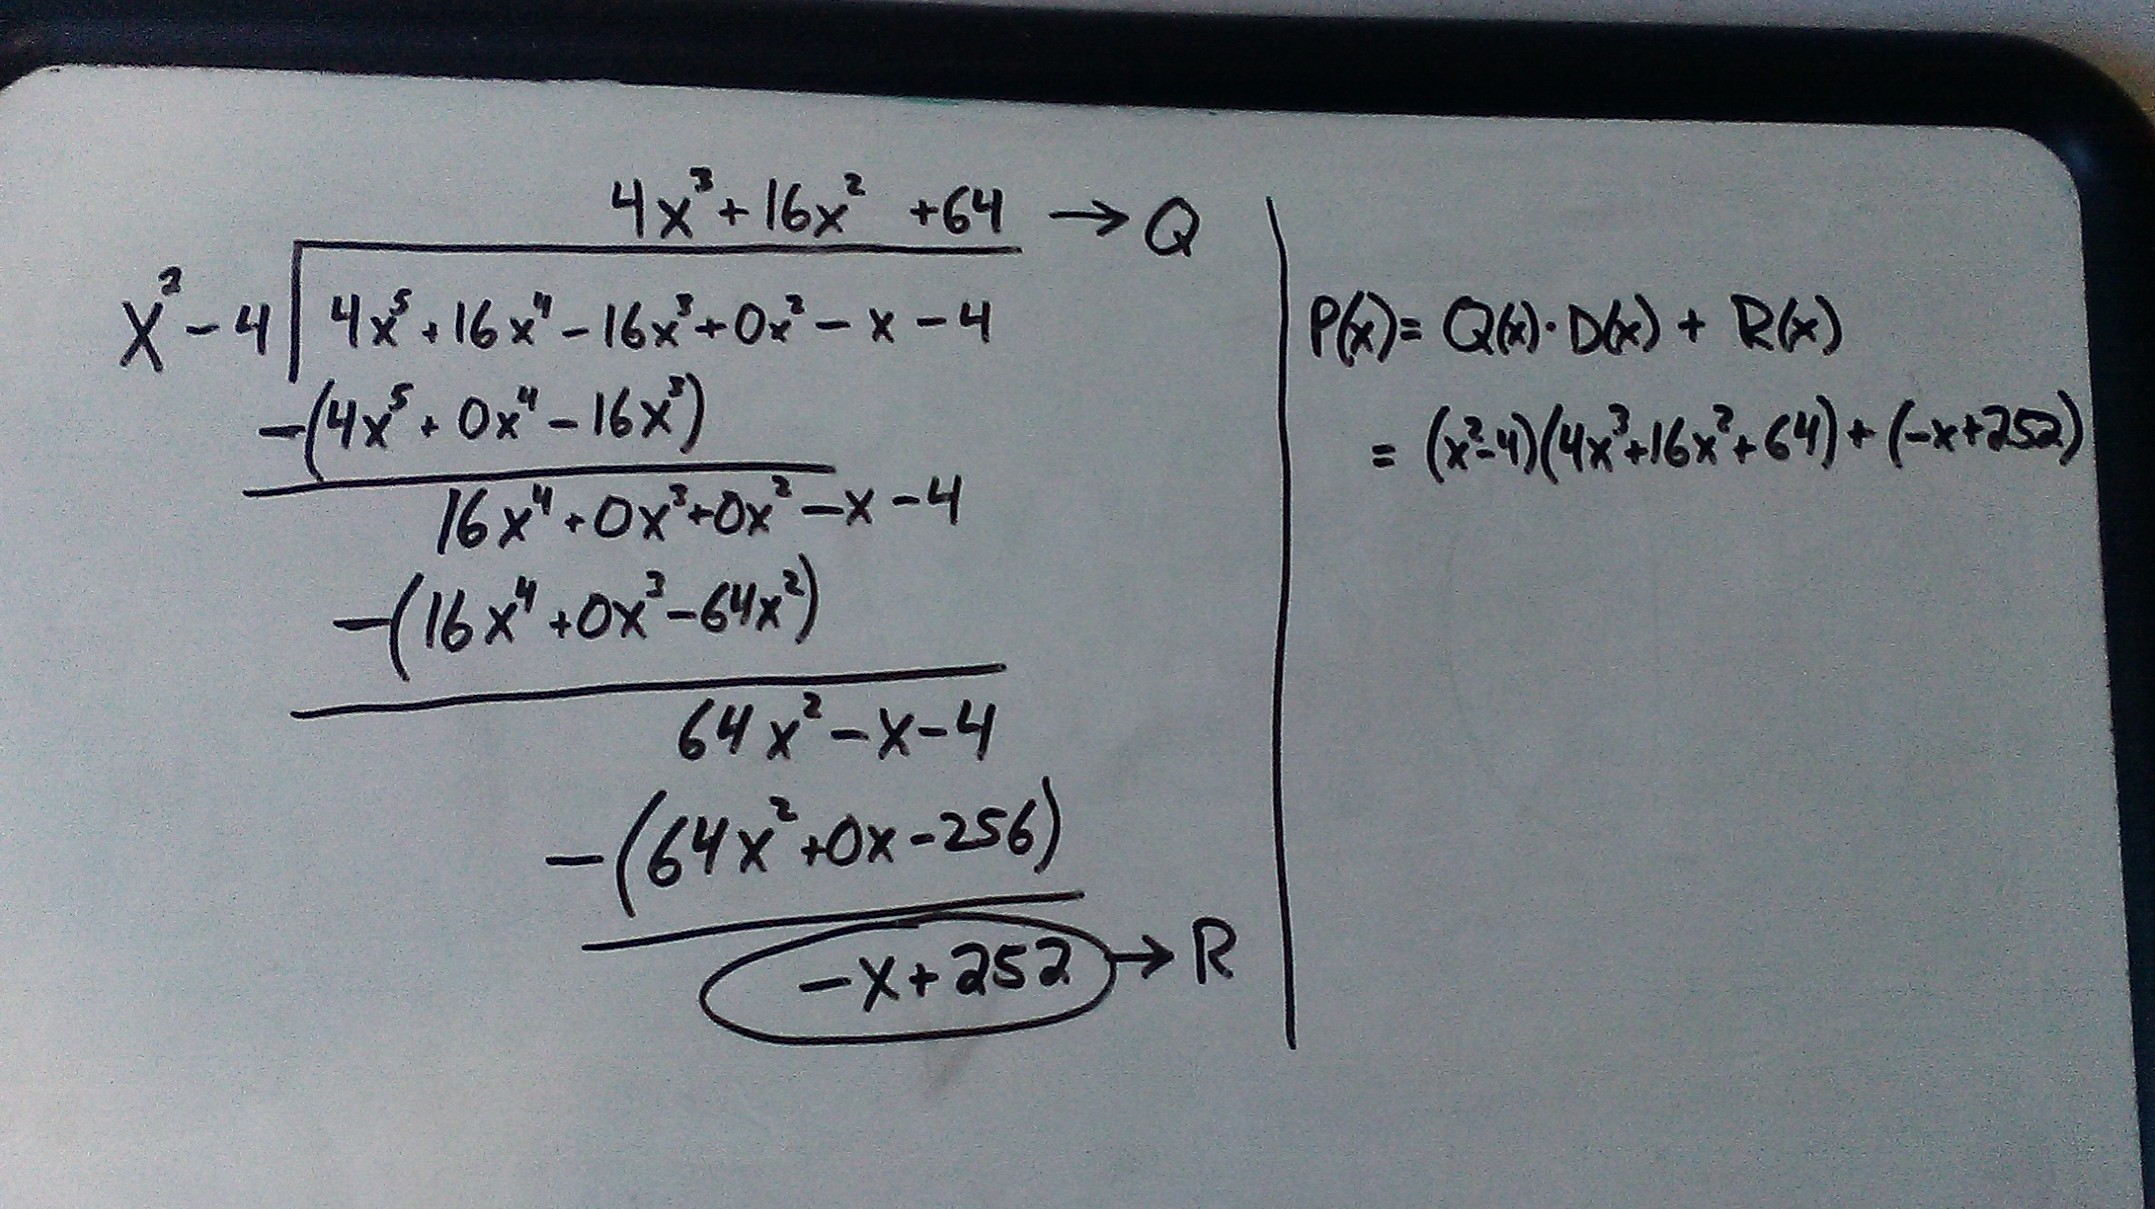 4x³+16x² +64 → Q
x²-4 | 4x⁵+16x⁴-16x³+0x²-x-4
-(4x⁵+0x⁴-16x³)
16x⁴+0x³+0x²-x-4
-(16x⁴+0x³-64x²)
64x²-x-4
-(64x²+0x-256)
-x+252 → R
P(x)= Q(x)·D(x) + R(x)
= (x²-4)(4x³+16x²+64)+(-x+252)